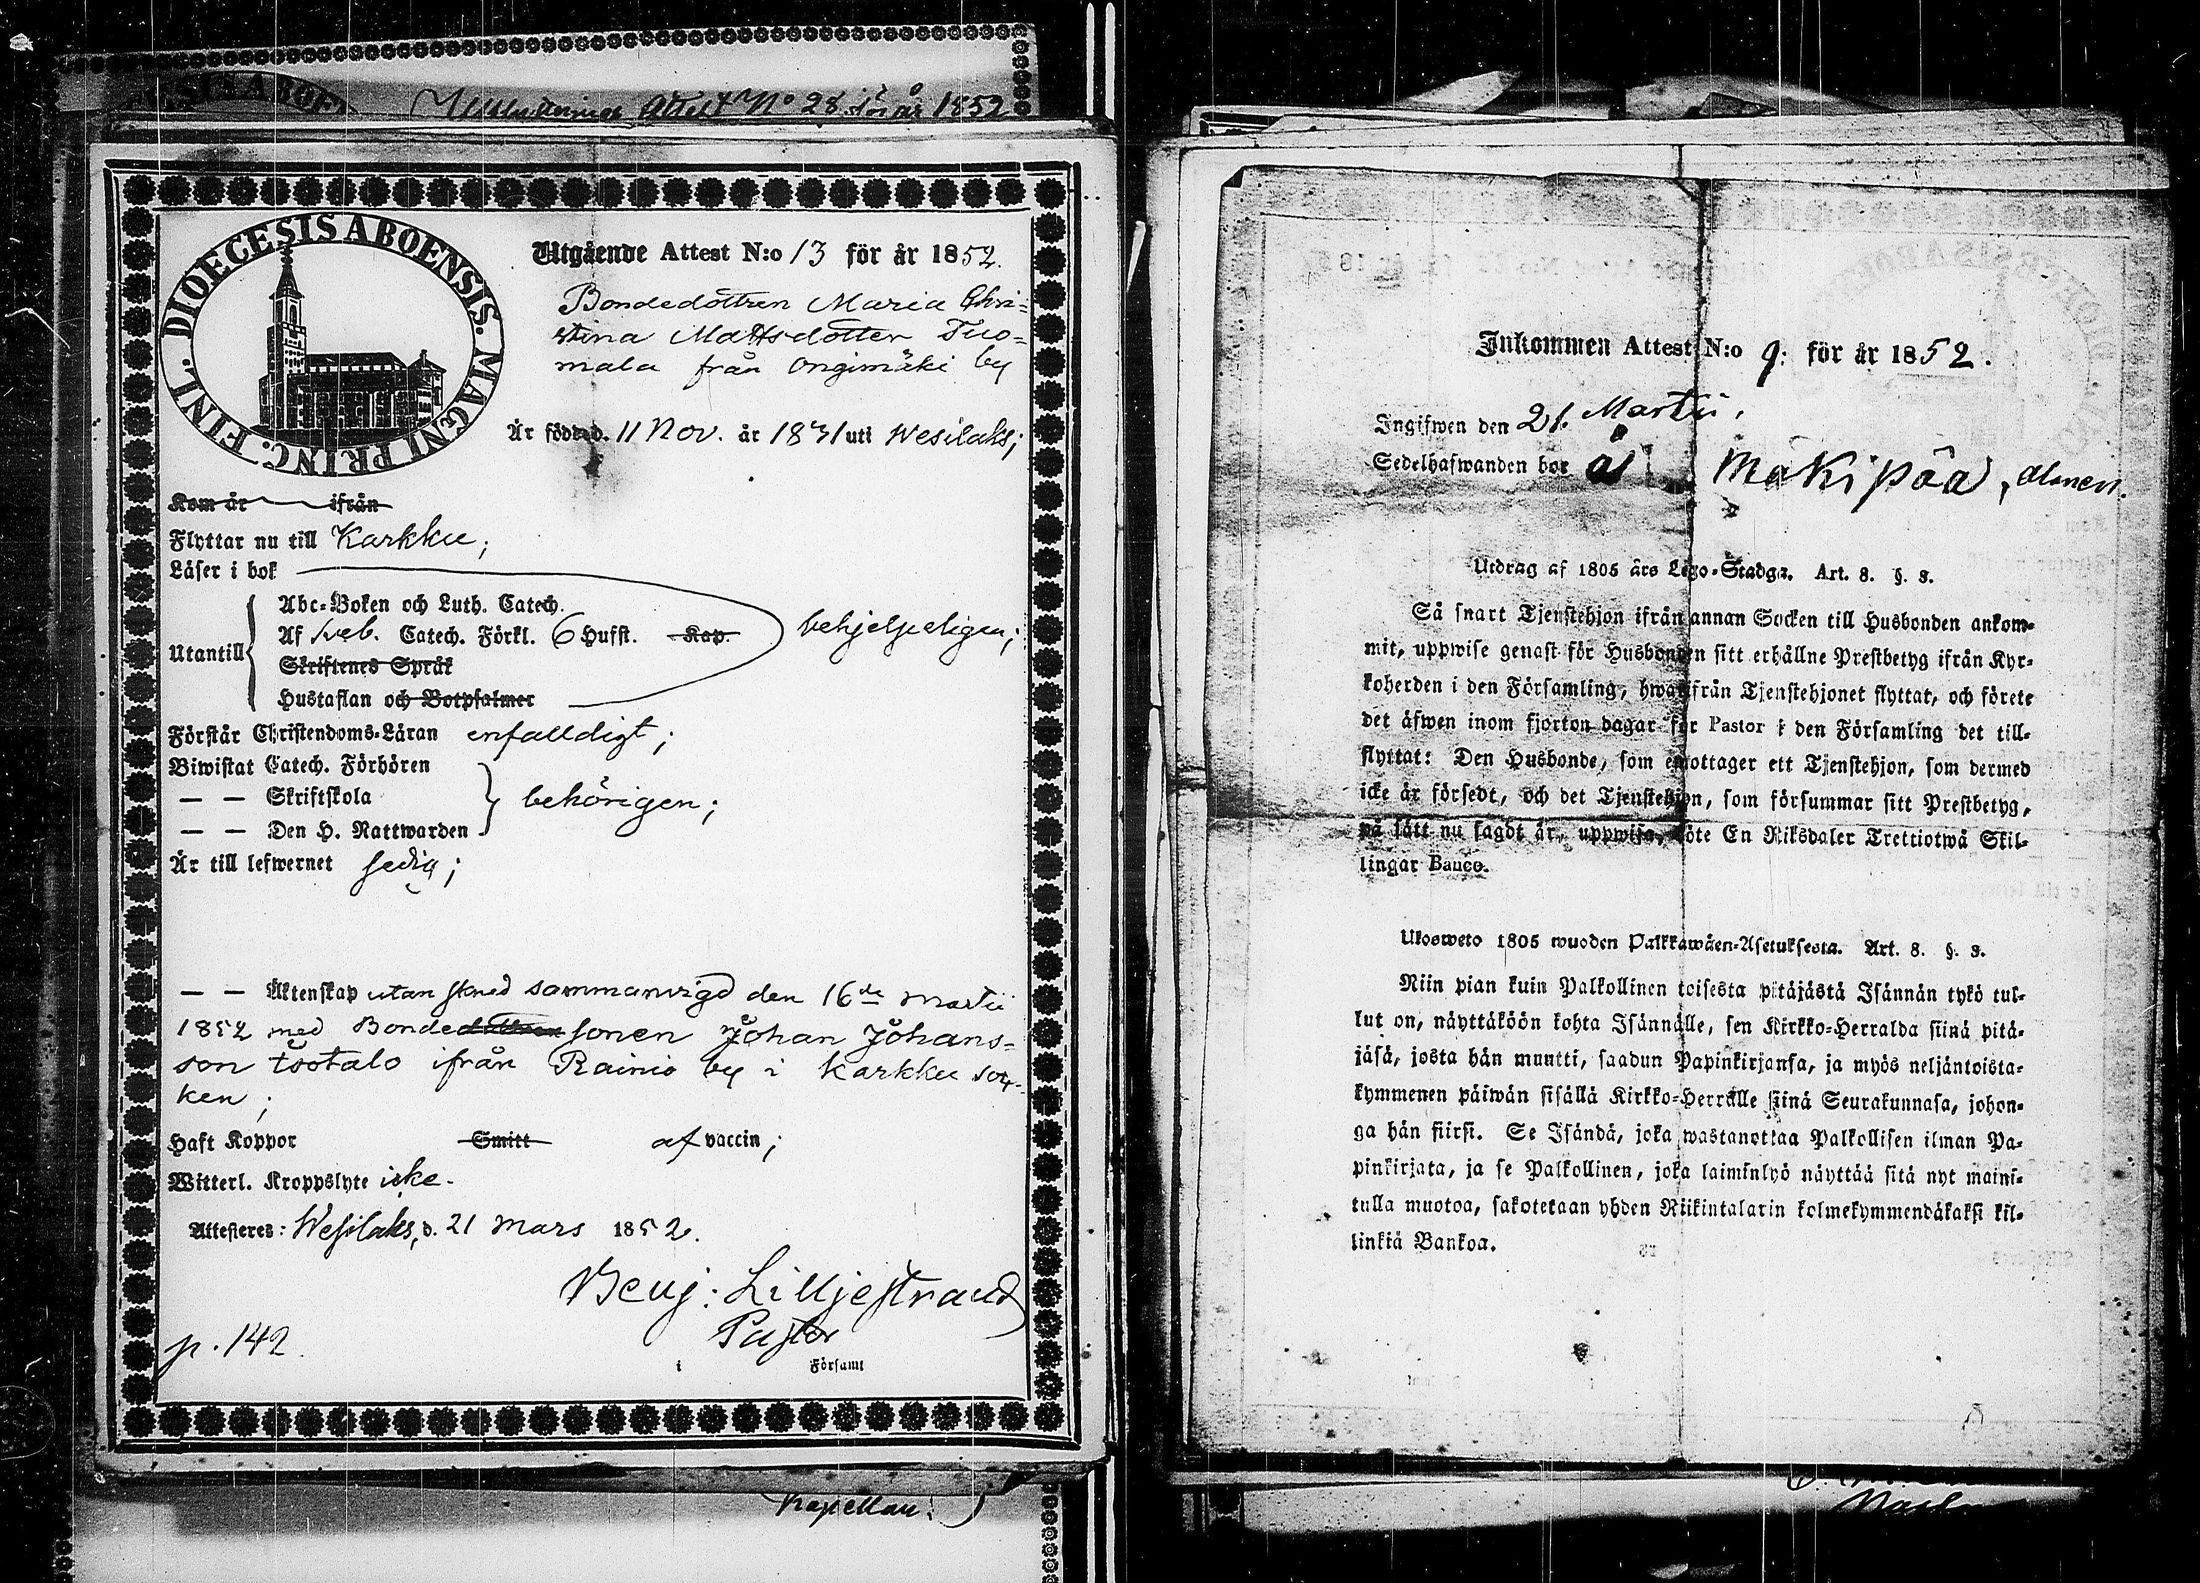 Attest No 28 för år 1852
DIOECESIS ABOENSIS. MAGNI PRINC. FINL.
Utgående Attest N:o 13 för år 1852.
Bondedottren Maria Chri=
stina Mattsdotter Tuo=
mala från Ongimäki by
Är född d. 11 Nov. år 1831 uti Wesilaks;
Kom år ifrån
Flyttar nu till Karkku;
Läser i bok
Abc-Boken och Luth. Catech.
Af Sveb. Catech. Förkl. 6 Hufst. Kap. behjelpeligen;
Utantill
Skriftenes Språk
Hustaflan och Botpsalmer
Förstår Christendoms-Läran enfalldigt;
Biwistat Catech. Förhören
— — Skriftskola behörigen;
— — Den H. Nattwarden
Är till lefwernet sedig;
— — Äktenskap utan sked sammanvigd den 16de Martii
1852 med Bondedottren sonen Johan Johans=
son Isotalo ifrån Rainio by i Karkku soc=
ken;
Haft Koppor Smitt af vaccin;
Witterl. Kroppslyte icke.
Attesteres: Wesilaks, d. 21 Mars 1852.
Benj: Lilljestrand
Pastor
i Församl
p. 142.
Kapellan.
Inkommen Attest N:o 9: för år 1852.
Ingifwen den 21. Martii,
Sedelhafwanden bor å Mäkipää,
Utdrag af 1805 års Lego-Stadga. Art. 8. §. 3.
Så snart Tjenstehjon ifrån annan Socken till Husbonden ankom-
mit, uppwise genast för Husbonden sitt erhållne Prestbetyg ifrån Kyr-
koherden i den Församling, hwarifrån Tjenstehjonet flyttat, och förete
det äfwen inom fjorton dagar för Pastor i den Församling det till-
flyttat: Den Husbonde, som emottager ett Tjenstehjon, som dermed
icke är försedt, och det Tjenstehjon, som försummar sitt Prestbetyg,
på sätt nu sagdt är, uppwisa, böte En Riksdaler Trettiotwå Skil-
lingar Banco.
Ulosweto 1805 wuoden Palkkawäen-Asetuksesta. Art. 8. §. 3.
Niin pian kuin Palkollinen toisesta pitäjästä Isännän tykö tul-
lut on, näyttäköön kohta Isännälle, sen Kirkko-Herralda siinä pitä-
jäsä, josta hän muutti, saadun Papinkirjansa, ja myös neljäntoista-
kymmenen päiwän sisällä Kirkko-Herralle siinä Seurakunnasa, johon-
ga hän siirsi. Se Isändä, joka wastanottaa Palkollisen ilman Pa-
pinkirjata, ja se Palkollinen, joka laiminlyö näyttää sitä nyt maini-
tulla muotoa, sakotetaan yhden Riikintalarin kolmekymmendäkaksi kil-
linkiä Bankoa.